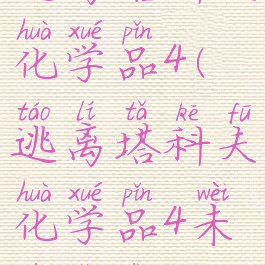 huà xué pǐn
化学品4(
táo lí tǎ kē fū
逃离塔科夫
huà xué pǐn wèi
化学品4未